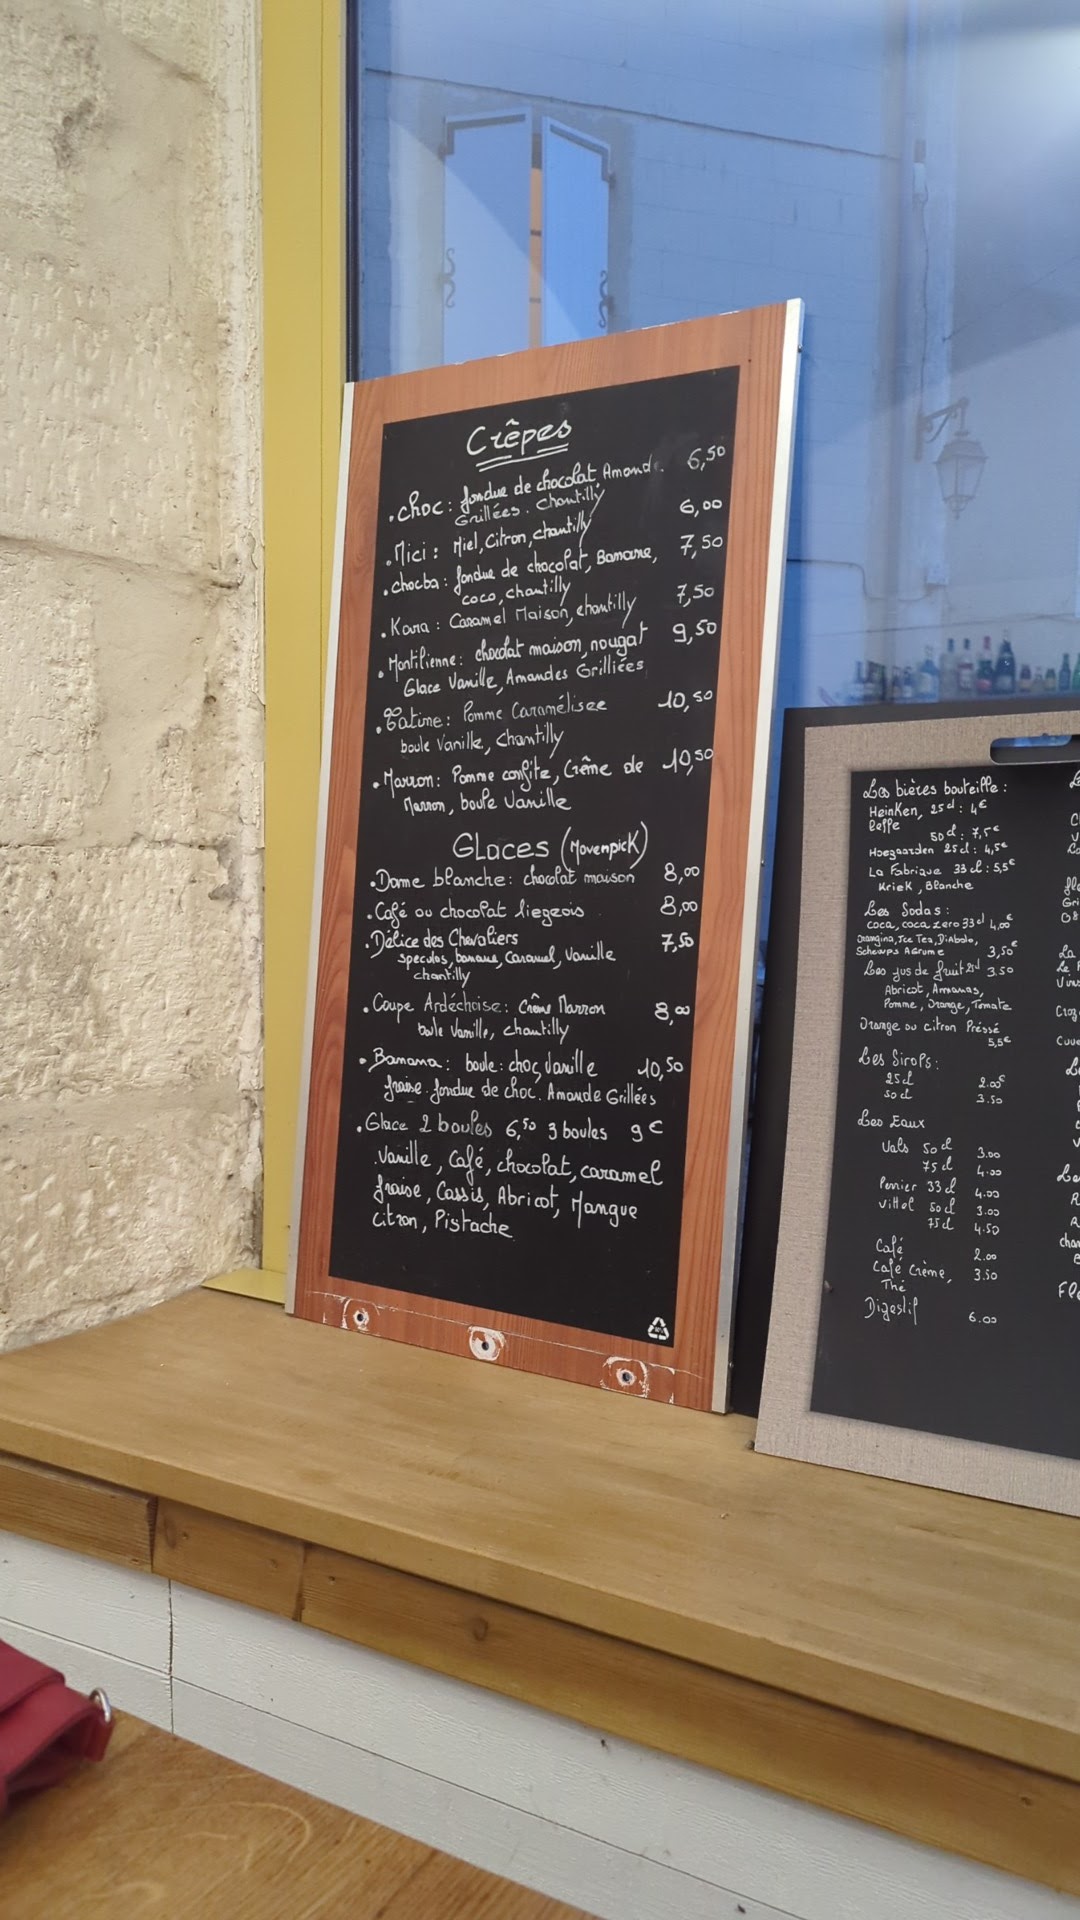 Crêpes
. choc : fondue de chocolat, Amand. 6,50
Grillées. Chantilly
. Mici : Miel, Citron, chantilly 6,00
. chocba : fondue de chocolat, Banane, 7,50
coco, chantilly
. Kara : Caramel Maison, chantilly 7,50
. Montilienne : chocolat maison, nougat 9,50
Glace Vanille, Amandes Grilliées
. Tatine : Pomme Caramélisee 10,50
boule Vanille, Chantilly
. Marron : Pomme confite, Crême de 10,50
Marron, boule Vanille
GLaces (MovenpicK)
. Dame blanche : chocolat maison 8,00
. Café ou chocolat liegeois 8,00
. Délice des Chevaliers 7,50
speculos, banane, caramel, Vanille
chantilly
. Coupe Ardéchoise : Crême Marron 8,00
boule Vanille, chantilly
. Banana : boule : choc, Vanille 10,50
fraise. fondue de choc. Amande Grillées
. Glace 2 boules 6,50 3 boules 9 €
Vanille, Café, chocolat, caramel
fraise, Cassis, Abricot, Mangue
Citron, Pistache
Les bières bouteille :
HeinKen, 25 cl : 4€
Leffe
50 cl : 7,5€
Hoegaarden 25 cl : 4,5€
La Fabrique 33 cl : 5,5€
KrieK, Blanche
Les Sodas :
coca, coca zero 33 cl 4,00€
Orangina, Ice Tea, Diabolo, 3,50€
Scheweps Agrume
Les jus de fruit 3.50
Abricot, Annanas,
Pomme, Orange, Tomate
Orange ou citron Préssé
5,5€
Les Sirops :
25 cl 2.00€
50 cl 3.50
Les Eaux
Vals 50 cl 3.00
75 cl 4.00
Perrier 33 cl 4.00
Vittel 50 cl 3.00
75 cl 4.50
Café 2.00
Café Crème, 3.50
Thé
Digestif 6.00